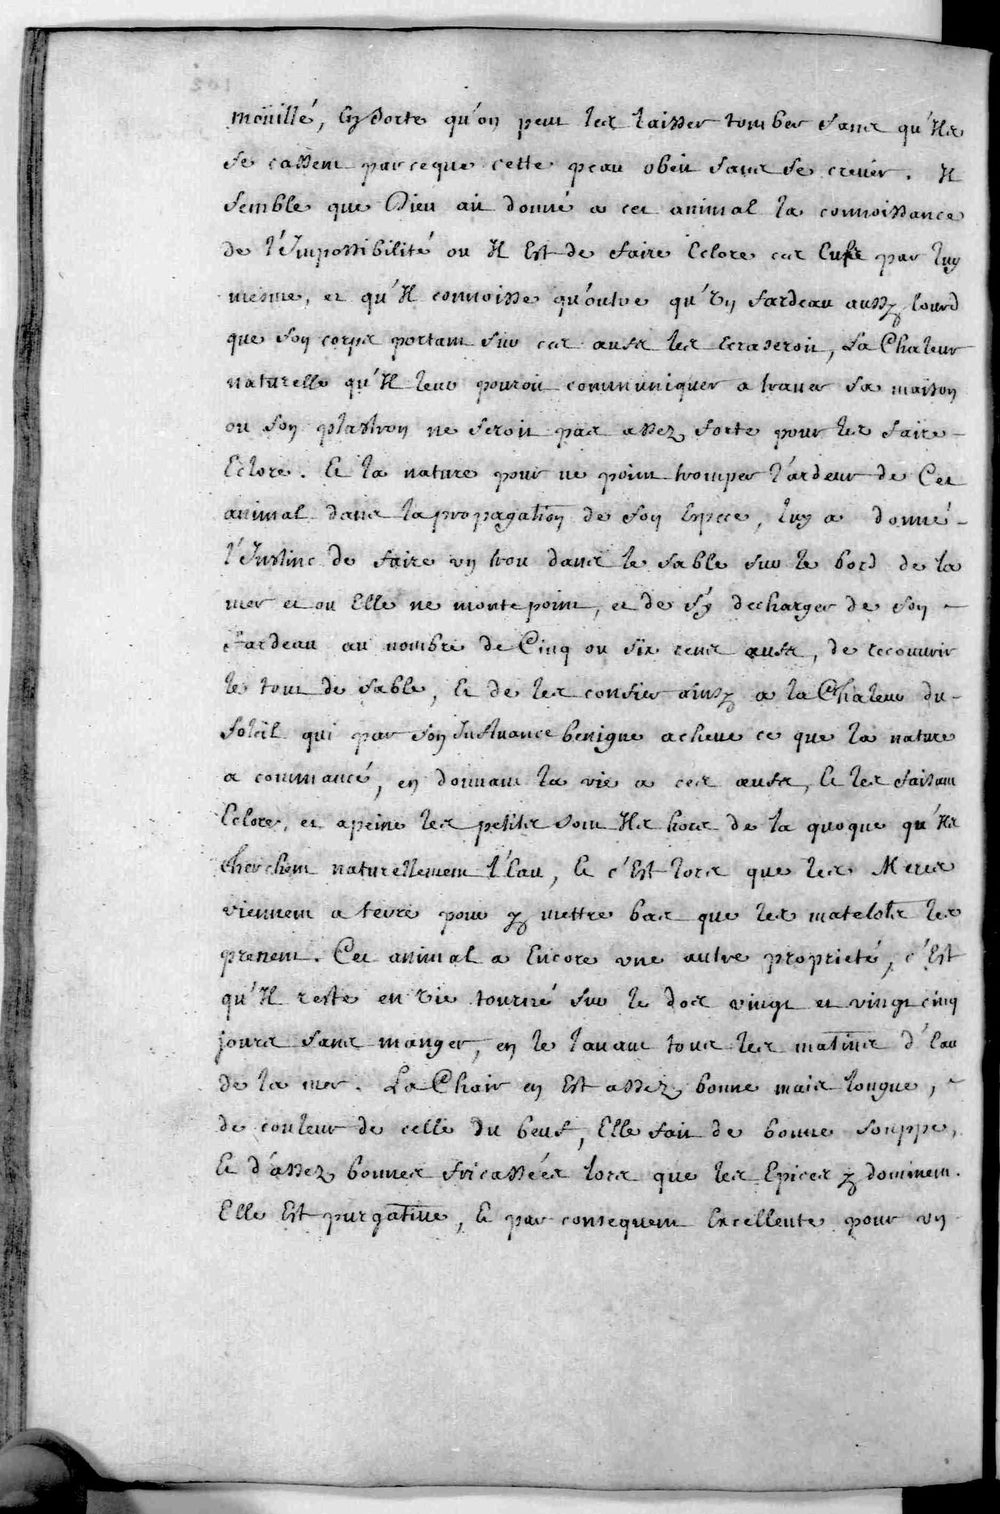 moüillé, En Sorte qu'on peut les laisser tomber sans qu'Ils
se cassent parceque cette peau obeit sans se crever. Il
semble que Dieu ait donné a cet animal la connoissance
de l'Impossibilité ou Il Est de faire Eclore ces Eufs par luy
mesme, et qu'Il connoisse qu'outre qu'Un fardeau aussy lourd
que son corps portant sur ces œufs les Ecraseroit, La Chaleur
naturelle qu'Il leur pouroit communiquer a travers sa maison
ou son plastron ne seroit pas assez forte pour les faire
Eclore. Et la nature pour ne point tromper l'ardeur de Cet
animal dans la propagation de son Espece, luy a donné
l'Instinc de faire un trou dans le sable sur le bord de la
mer et ou Elle ne monte point, et de s'y decharger de son
fardeau au nombre de Cinq ou six cens œufs, de recouvrir
le tout de sable, Et de les confier ainsy a la Chaleur du
Soleil qui par son Influance benigne acheve ce que la nature
a commancé, en donnant la vie a ces œufs, Et les faisant
Eclore, et apeine les petits sont Ils hors de la quoque qu'Ils
cherchent naturellement l'Eau, Et c'Est lors que les Meres
viennent a terre pour y mettre bas que les matelots les
prenent. Cet animal a Encore une autre proprieté, c'Est
qu'Il reste en Vie tourné sur le dos vingt et vingt cinq
jours sans manger, en le lavant tous les matins d'Eau
de la mer. La Chair en Est assez bonne mais longue,
de couleur de celle du beuf, Elle fait de bonne souppe,
Et d'assez bonnes fricassées lors que les Epices y dominent.
Elle Est purgative, Et par consequent Excellente pour un